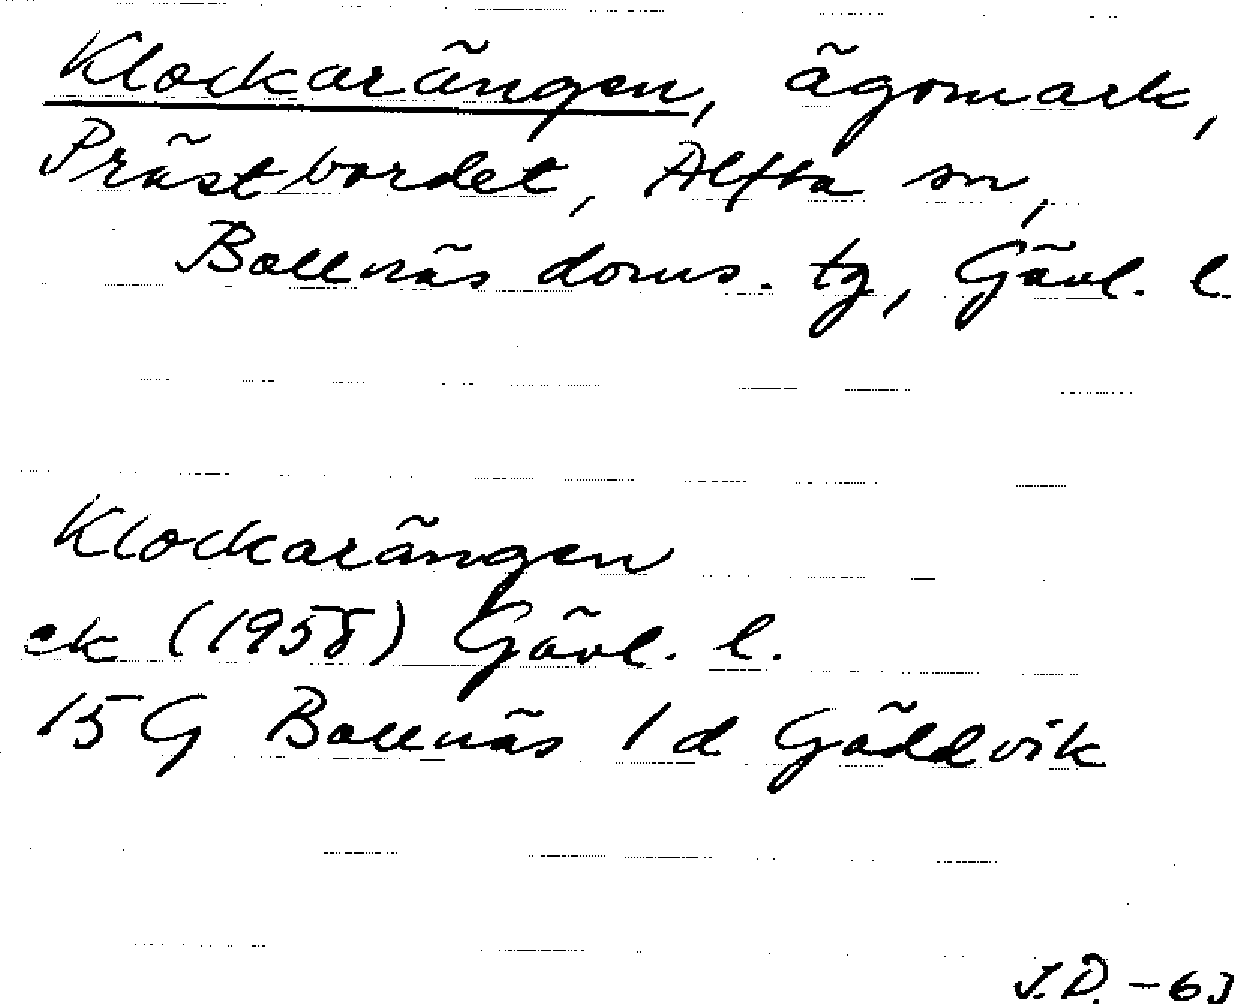 Klockarängen, ägomark,
Prästbordet, Alfta sn,
Bollnäs doms. tg, Gävl. l
Klockarängen
ek (1958) Gävl. l.
15 G Bollnäs 1 d Gäddvik
J.D. - 63